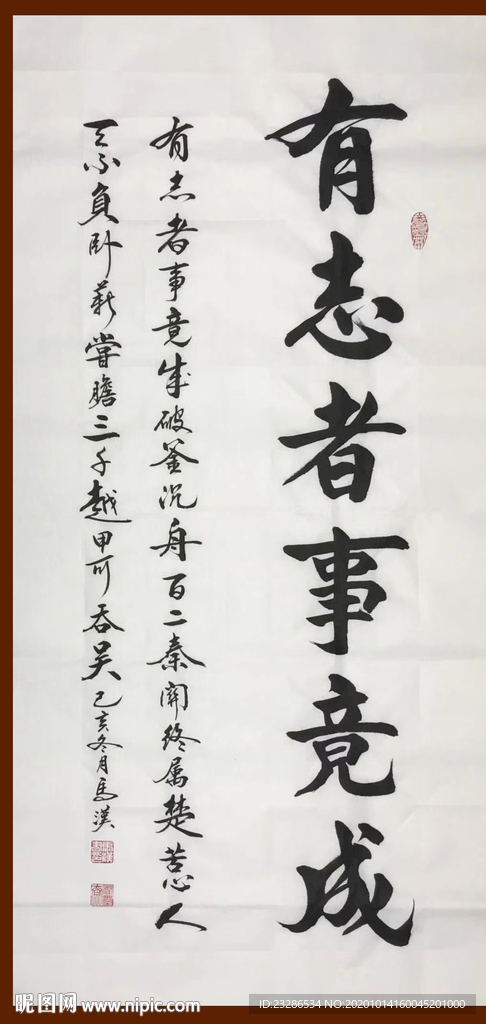 有志者事竟成
有志者事竟成破釜沉舟百二秦關终属楚苦心人
天不負卧薪嘗膽三千越甲可吞吴己亥冬月馬漢
昵图网 www.nipic.com
ID:23286534 NO:20201014160045201000